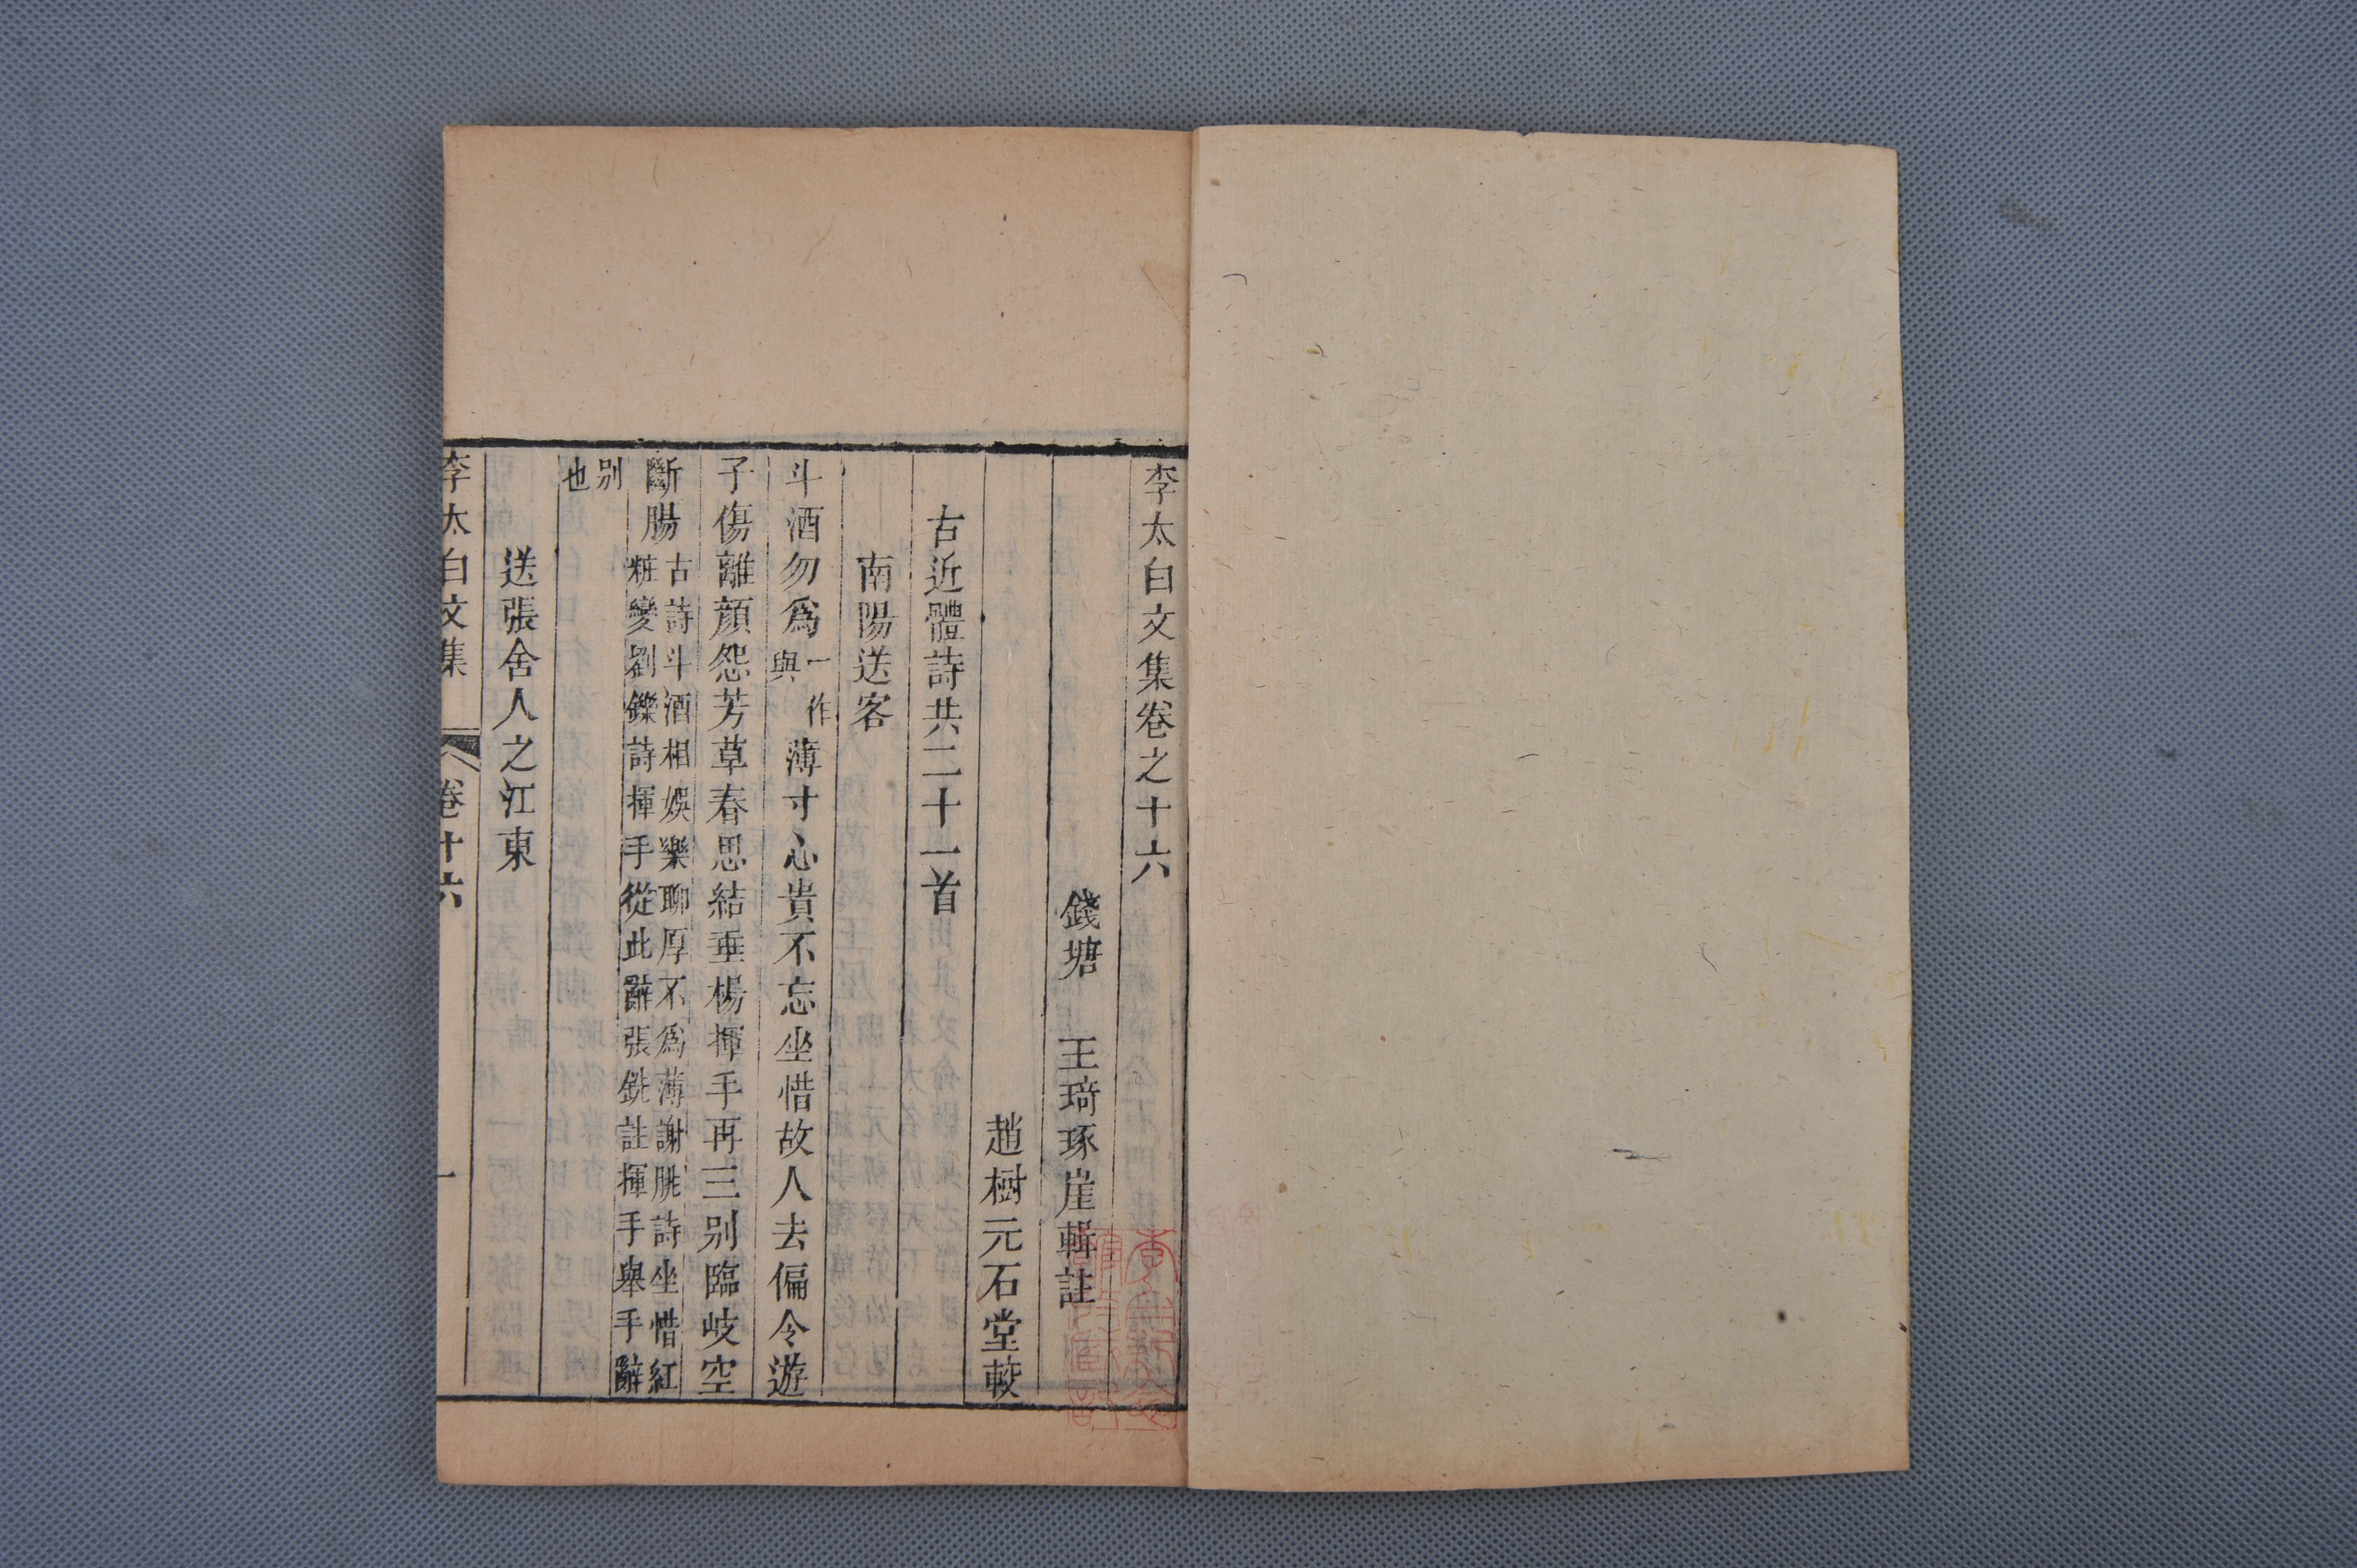 李太白文集卷之十六
錢塘 王琦琢崖輯註
趙樹元石堂較
古近體詩共二十一首
南陽送客
斗酒勿爲一作與薄寸心貴不忘坐惜故人去偏令遊
子傷離顏怨芳草春思結垂楊揮手再三别臨岐空
斷腸古詩斗酒相娛樂聊厚不爲薄謝朓詩坐惜紅
粧變劉鑠詩揮手從此辭張銑註揮手舉手辭
别
也
送張舍人之江東
李太白文集 卷十六 一